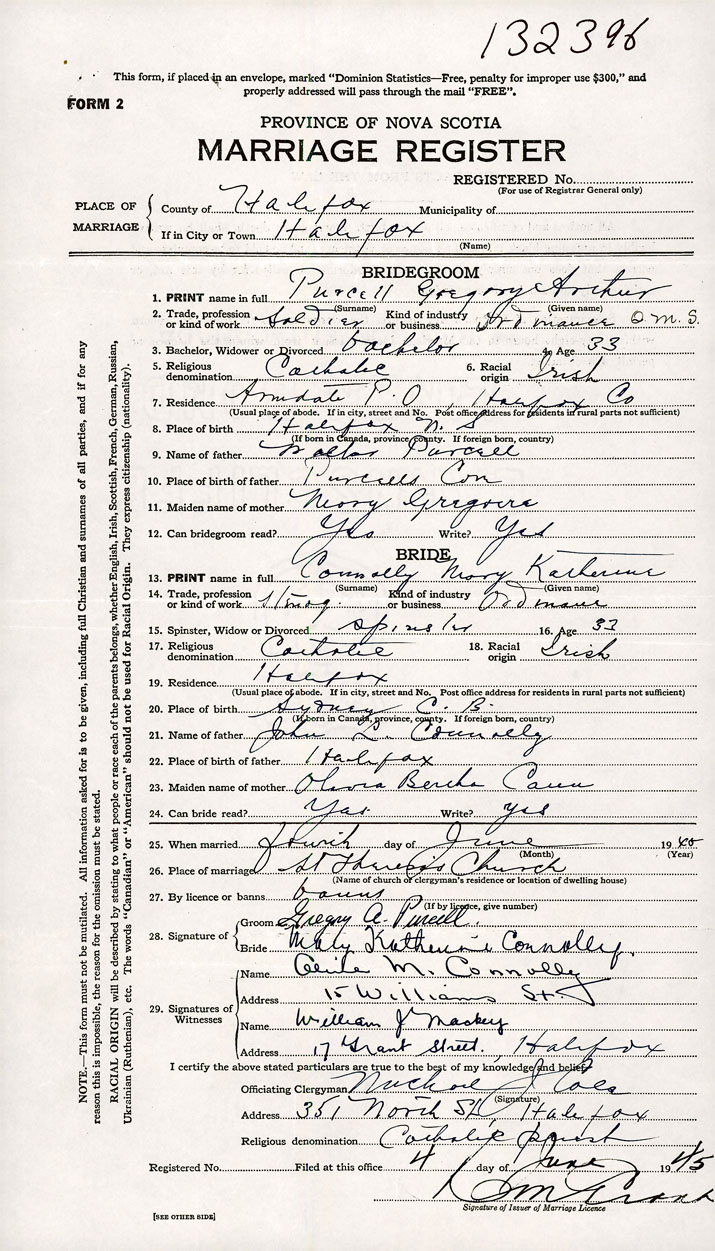 132396
This form, if placed in an envelope, marked "Dominion Statistics—Free, penalty for improper use $300," and
properly addressed will pass through the mail "FREE".
FORM 2
PROVINCE OF NOVA SCOTIA
MARRIAGE REGISTER
REGISTERED No.
(For use of Registrar General only)
PLACE OF MARRIAGE
County of Halifax Municipality of
If in City or Town Halifax
(Name)
BRIDEGROOM
1. PRINT name in full Purcell Gregory Arthur
(Surname) (Given name)
2. Trade, profession or kind of work Soldier Kind of industry or business O.M.S.
3. Bachelor, Widower or Divorced bachelor 4. Age 33
5. Religious denomination Catholic 6. Racial origin Irish
7. Residence Armdale P.O., Halifax Co
(Usual place of abode. If in city, street and No. Post office address for residents in rural parts not sufficient)
8. Place of birth Halifax N.S
(If born in Canada, province, county. If foreign born, country)
9. Name of father Walter Purcell
10. Place of birth of father Purcells Cov
11. Maiden name of mother Mary Gregoire
12. Can bridegroom read? Yes Write? Yes
BRIDE
13. PRINT name in full Connolly Mary Katherine
(Surname) (Given name)
14. Trade, profession or kind of work Stenog. Kind of industry or business
15. Spinster, Widow or Divorced Spinster 16. Age 33
17. Religious denomination Catholic 18. Racial origin Irish
19. Residence Halifax
(Usual place of abode. If in city, street and No. Post office address for residents in rural parts not sufficient)
20. Place of birth Sydney C.B.
(If born in Canada, province, county. If foreign born, country)
21. Name of father John L. Connolly
22. Place of birth of father Halifax
23. Maiden name of mother Olivia Bertha Cann
24. Can bride read? Yes Write? yes
25. When married fourth day of June 1945
(Month) (Year)
26. Place of marriage St Theresa's Church
(Name of church or clergyman's residence or location of dwelling house)
27. By licence or banns banns
(If by licence, give number)
28. Signature of
Groom Gregory A. Purcell
Bride Mary Katherine Connolly.
29. Signatures of Witnesses
Name M. Connolly
Address 15 Williams St.
Name William J Mackey
Address 17 Grant Street., Halifax
I certify the above stated particulars are true to the best of my knowledge and belief.
Officiating Clergyman J
(Signature)
Address 351 North St, Halifax
Religious denomination Catholic priest
Registered No. Filed at this office 4 day of June 1945
Signature of Issuer of Marriage Licence
[SEE OTHER SIDE]
NOTE.—This form must not be mutilated. All information asked for is to be given, including full Christian and surnames of all parties, and if for any
reason this is impossible, the reason for the omission must be stated.
RACIAL ORIGIN will be described by stating to what people or race each of the parents belongs, whether English, Irish, Scottish, French, German, Russian,
Ukrainian (Ruthenian), etc. The words "Canadian" or "American" should not be used for Racial Origin. They express citizenship (nationality).